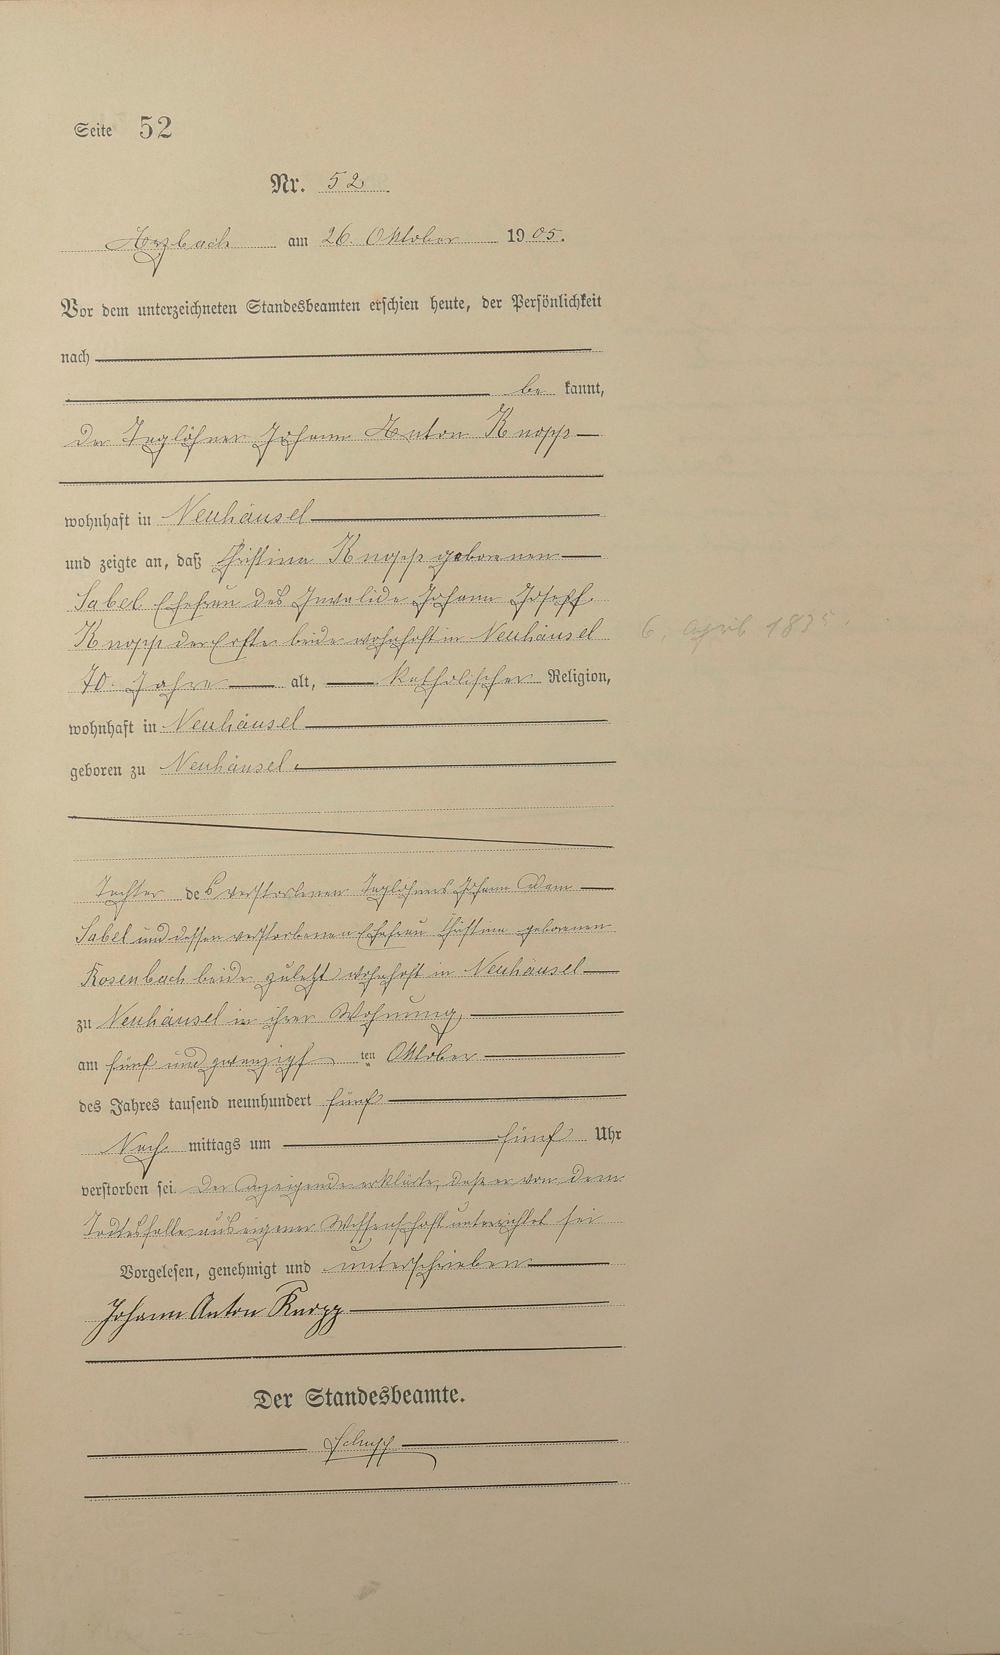 Seite 52
Nr. 52
Arzbach am 26. Oktober 1905.
Vor dem unterzeichneten Standesbeamten erschien heute, der Persönlichkeit
nach
be kannt,
der Taglöhner Johann Anton Knopp
wohnhaft in Neuhäusel
und zeigte an, daß Christina Knopp geborenen
Sabel Ehefrau des Invalide Johann Josepf
Knopp der Erste beide wohnhaft in Neuhäusel
6. April 1835.
70 Jahre alt, katholischer Religion,
wohnhaft in Neuhäusel
geboren zu Neuhäusel
Tochter des verstorbenen Taglöhners Johann
Sabel und dessen verstorbenen Ehefrau Christina geborenen
Rosenbach beide zuletzt wohnhaft in Neuhäusel
zu Neuhäusel in ihrer Wohnung,
am fünf und zwanzigs ten Oktober
des Jahres tausend neunhundert fünf
Nach mittags um fünf Uhr
verstorben sei. Der Anzeigende erklärte, daß er von dem
Todesfalle aus eigener Wissenschaft unterrichtet sei
Vorgelesen, genehmigt und unterschrieben
Johann Anton Knopp
Der Standesbeamte.